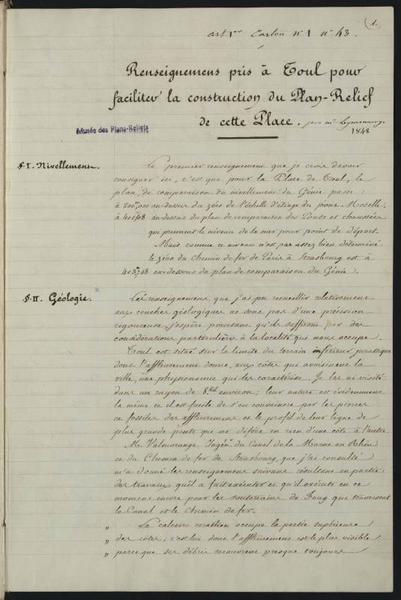 1.
art 1er Carton n° 1 n° 43.
Renseignemens pris à Toul pour
faciliter la construction du Plan-Relief
de cette Place.
1848
Musée des Plans-Relief
§ I. Nivellement.
Le premier renseignement que je crois devoir
consigner ici, c'est que pour la Place de Toul, le
plan de comparaison du nivellement du Génie passe:
à au dessus du zéro de l'échelle d'étiage du pont Moselle,
à au dessus du plan de comparaison des Ponts et chaussées
qui prennent le niveau de la mer pour point de départ.
Mais comme ce niveau n'est pas assez bien déterminé
le zéro du Chemin de fer de Paris à Strasbourg est à
au dessous du plan de comparaison du Génie.
§ II. Géologie.
Les renseignemens que j'ai pu recueillir relativement
aux couches géologiques ne sont pas d'une précision
rigoureuse. J'espère pourtant qu'ils suffiront par des
considérations particulières à la localité qui nous occupe.
Toul est situé sur la limite du terrain inférieur jurassique
dont l'affleurement donne, aux côtes qui avoisinent la
ville, une physionomie qui les caractérise. Je les ai visités
dans un rayon de environ; leur nature est évidemment
la même et il est facile de s'en convaincre par les pierres
et fossiles des affleuremens et le profil de leur ligne de
plus grande pente qui ne diffère en rien d'une côte à l'autre.
Mr Valmorange, Ingénr du Canal de la Marne au Rhin
et du Chemin de fer de Strasbourg, que j'ai consulté
m'a donné les renseignemens suivans résultant en partie
des travaux qu'il a fait exécuter et qu'il exécute en ce
moment encore pour les souterrains de Foug que traversent
le Canal et le Chemin de fer.
" Le calcaire corallien occupe la partie supérieure
" des côtes; c'est lui dont l'affleurement est le plus visible
" parce que ses débris recouvrent presque toujours